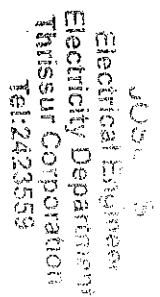 Electrical Engineer
Electricity Department
Thrissur Corporation
Tel:2423559